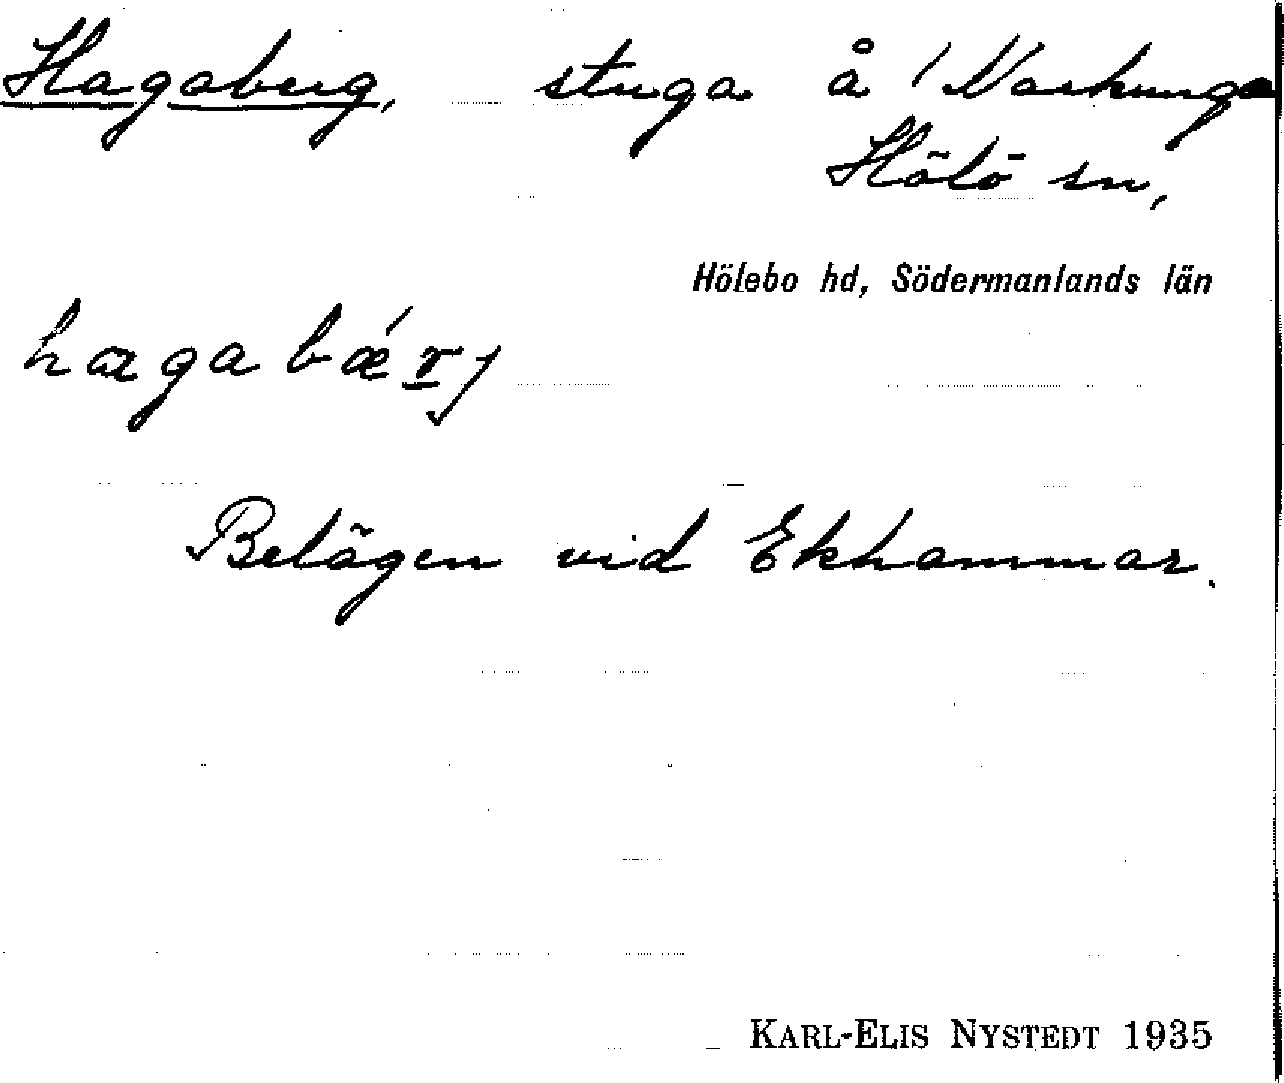 Hagaberg, stuga å 1 Norrkunga
Hölö sn,
Hölebo hd, Södermanlands län
hagabǽrj
Belägen vid Ekhammar.
KARL-ELIS NYSTEDT 1935